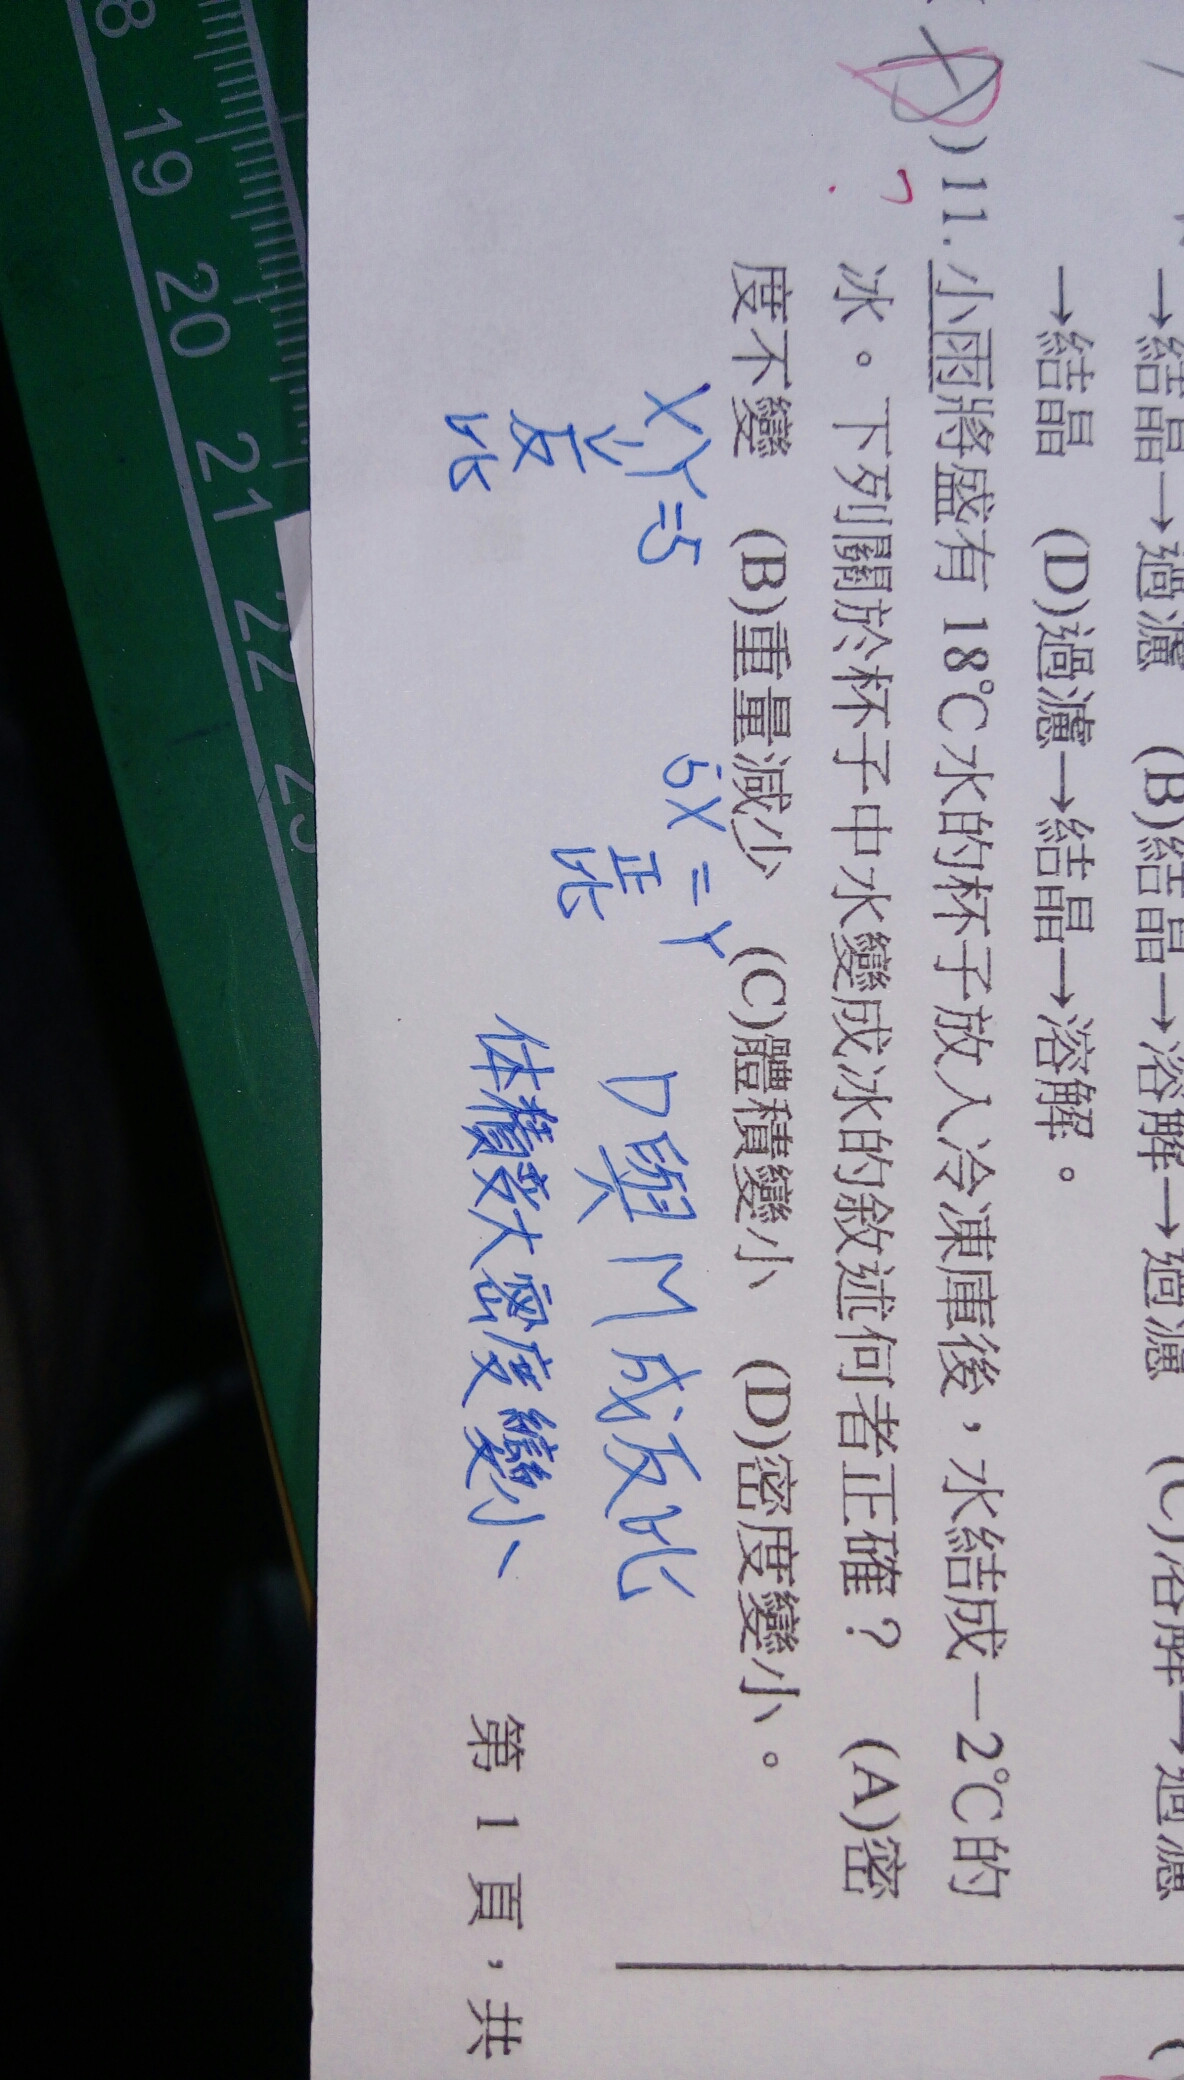 →結晶→過濾 (B)結晶→溶解→過濾 (C)溶解→過濾
→結晶 (D)過濾→結晶→溶解。
)11.小雨將盛有18℃水的杯子放入冷凍庫後，水結成－2℃的
?冰。下列關於杯子中水變成冰的敘述何者正確？ (A)密
度不變 (B)重量減少 (C)體積變小 (D)密度變小。
XY=5
反
比
5X=Y
正
比
D與M成反比
体積變大密度變小、
第 1 頁，共
18 19 20 21 22 23